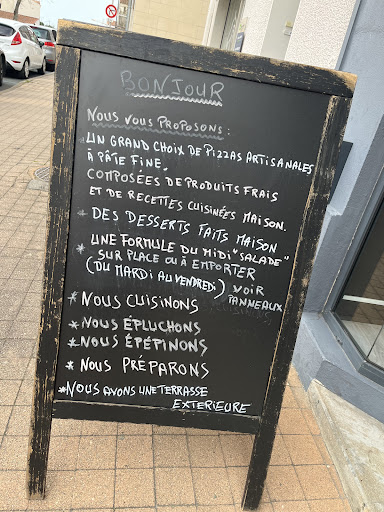 BONJOUR
NOUS VOUS PROPOSONS:
* UN GRAND CHOIX DE PIZZAS ARTISANALES
À PÂTE FINE.
COMPOSÉES DE PRODUITS FRAIS
ET DE RECETTES CUISINÉES MAISON.
* DES DESSERTS FAITS MAISON
* UNE FORMULE DU MIDI "SALADE"
SUR PLACE OU À EMPORTER
(DU MARDI AU VENDREDI) VOIR
PANNEAUX
* NOUS CUISINONS
* NOUS ÉPLUCHONS
* NOUS ÉPÉPINONS
* NOUS PRÉPARONS
* NOUS AVONS UNE TERRASSE
EXTERIEURE